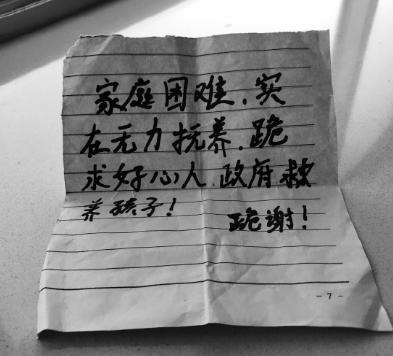 家庭困难、实
在无力抚养、跪
求好心人、政府救
养孩子!
跪谢!
- 7 -